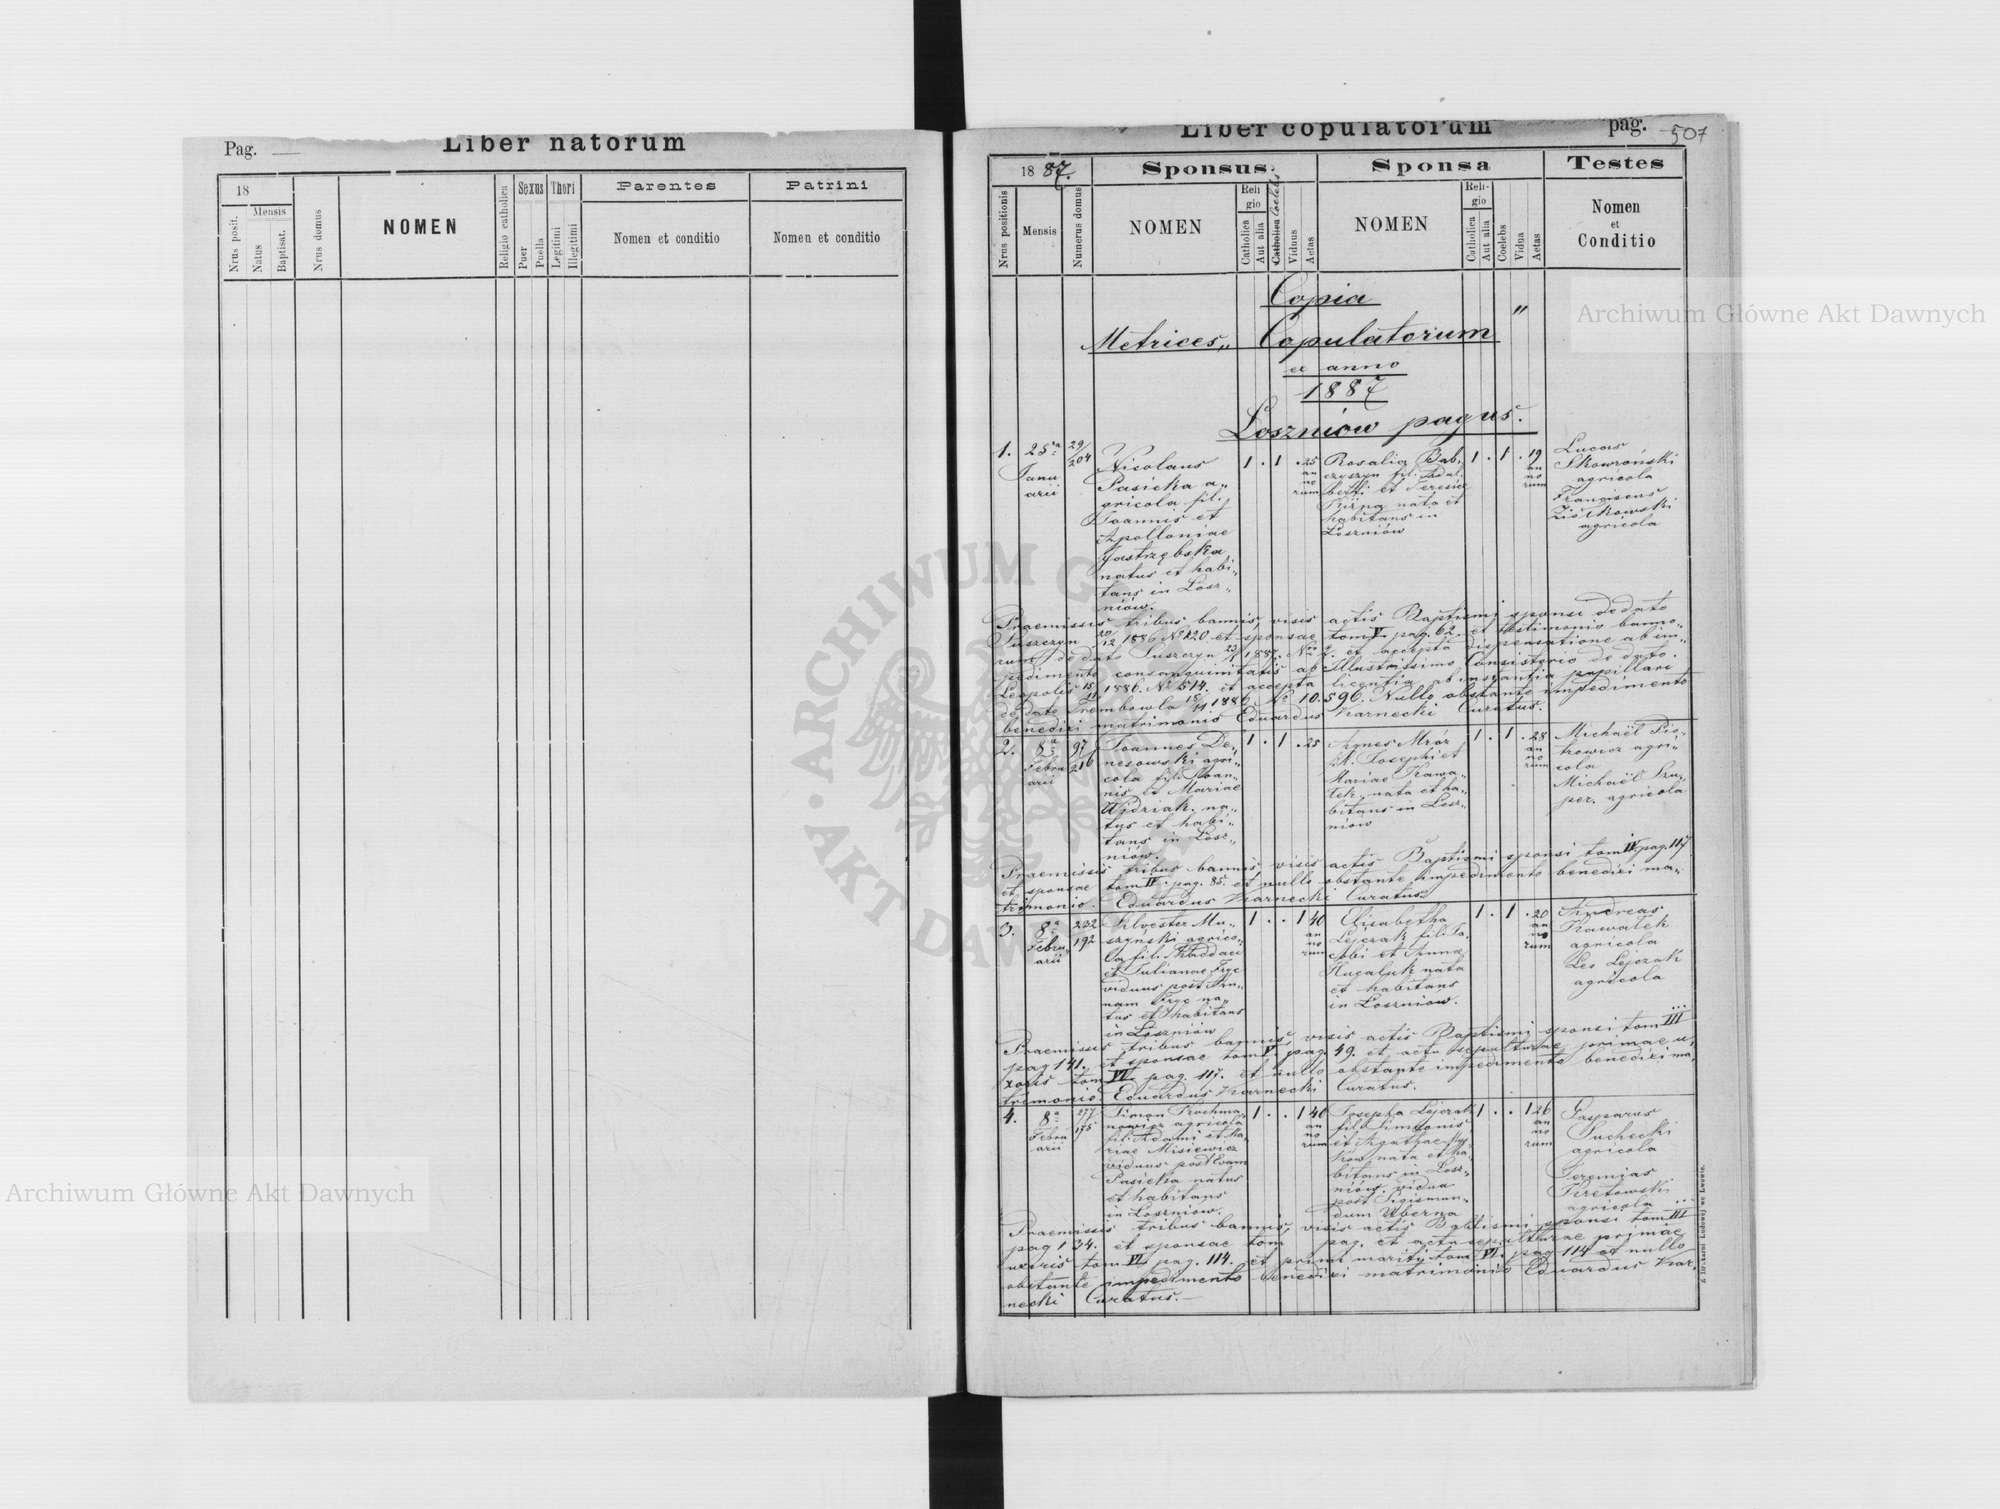 Pag.
Liber natorum
18
Mensis
Nrus posit.
Natus
Baptisat.
Nrus domus
NOMEN
Religio catholica
Sexus
Puer
Puella
Thori
Legitimi
Illegitimi
Parentes
Nomen et conditio
Patrini
Nomen et conditio
Liber copulatorum
pag. 507
1887.
Sponsus
Sponsa
Testes
Nrus positionis
Mensis
Numerus domus
NOMEN
Religio
Catholica
Aut alia
Catholica Coelebs
Viduus
Aetas
NOMEN
Religio
Catholica
Aut alia
Coelebs
Vidua
Aetas
Nomen
et
Conditio
Copia
Metrices „ Copulatorum "
ex anno
1887
Loszniów pagus.
1.
25ta
Janu
arii
29/204
Nicolaus
Pasieka a„
gricola fil.
Joannis et
Apolloniae
Jastrzębska
natus et habi„
tans in Losz„
niów.
1 . 1 . 25
an
no
rum
Rosalia Bab„
czyszyn fil. Adal„
berti et Teresia
Kirpa nata et
habitans in
Loszniów
1 . 1 . 19
an
no
rum
Lucas
Skowroński
agricola
Franciscus
Ziółkowski
agricola
Praemissis tribus bannis, visis actis Baptismi sponsi de dato
Suszczyn 20/12 1886 No 120 et sponsae tom V pag. 62. et testimonio banno„
rum de dato Suszczyn 23/1 1887. No 2. et accepta dispensatione ab im„
pedimento consanguinitatis ab Illustrissimo Consistorio de dato.
Leopolis 15/11 1886. No 514. et accepta licentia ab instantia pupillari
de dato Trembowla 18/11 1886 No 10.596. Nullo obstante impedimento
benedixi matrimonio Eduardus Karnecki Curatus.
2.
8a
Febru
arii
97/216
Joannes De„
nesowski agri„
cola fil. Joan„
nis et Mariae
Widziak. na„
tus et habi„
tans in Losz„
niów.
1 . 1 . 25
Agnes Mróz
fil. Josephi et
Mariae Kawa„
lek, nata et ha„
bitans in Losz„
niów
1 . 1 . 28
an
no
rum
Michaël Pio„
trowicz agri„
cola
Michaël Szu„
per. agricola
Praemissis tribus bannis, visis actis Baptismi sponsi tom IV pag. 117
et sponsae tom IV pag. 85. et nullo obstante impedimento benedixi ma„
trimonio. Eduardus Karnecki Curatus.
3.
8a
Febru„
arii
232
192
Silvester Mu„
szyński agrico„
la fil. Thaddaei
et Julianae Fryc
viduus post An„
nam Fryc na„
tus et habitans
in Loszniów
1 . . 1 40
an
no
rum
Elisabetha
Lejczak fil. Ja„
cobi et Anna
Hucaluk nata
et habitans
in Loszniow.
1 . 1 . 20
an
no
rum
Andreas
Kawałek
agricola
Leo Lejczak
agricola
Praemissis tribus bannis, visis actis Baptismi sponsi tom III
pag 141. et sponsae tom V pag. 49. et actu sepulturae primae u„
xoris tom VI pag. 117. et nullo obstante impedimento benedixi ma„
trimonio. Eduardus Karnecki Curatus.
4.
8a
Febru
arii
277/175
Simon Prochma„
nowicz agricola
fil. Adami et Ma„
riae Misiewicz
viduus post Evam
Pasieka natus
et habitans
in Loszniow.
1 . . 1 40
an
no
rum
Josepha Lejczak
fil. Simeonis
et Agathae My„
kow nata et ha„
bitans in Losz„
niów. vidua
post Sigismun„
dum Uberna
1 . . 1 26
an
no
rum
Gasparus
Suchecki
agricola
Jeremias
Kretowski
agricola
Praemissis tribus bannis, visis actis Babtismi sponsi tom III
pag 134. et sponsae tom pag. et actu sepulturae primae
uxoris tom VI pag. 114. et primi mariti tom VI. pag 114 et nullo
obstante impedimento benedixi matrimonio Eduardus Kar„
necki Curatus.
Z drukarni Ludowej we Lwowie.
Archiwum Główne Akt Dawnych
Archiwum Główne Akt Dawnych